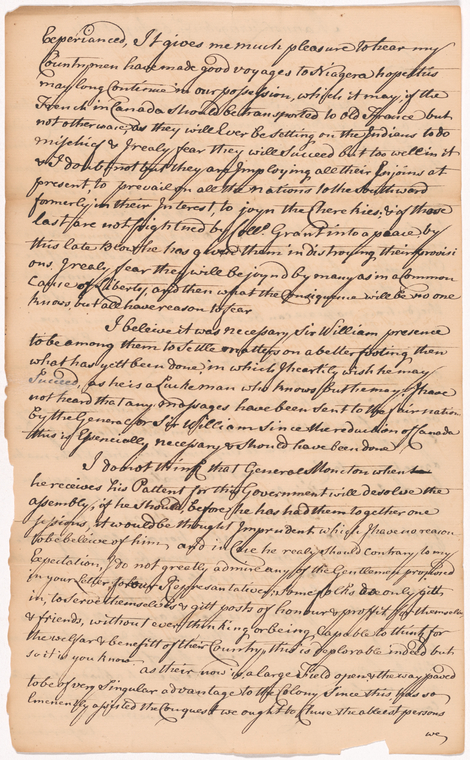 Experianced, It gives me much pleasure to hear my
Countrymen have made good voyages to Niagera hope this
may long Contenue in our possession, which it may, if the
French in Canada should be transported to Old France but
not otherways, as they will Ever be Setting on the Indians to do
mischief & I realy fear they will Succeed but too well in it
& I doubt not but they are Imploying all their Enjoins at
present to prevail on all the nations to the Southword
formerly in their Interest, to joyn the Cherekies, & if those
last are not frightned by Collo. Grant into a peace by
this late Blow he has given them in distroying their provisi
ons, I realy fear they will be joynd by many as in a Common
Cause of Liberty, and then what the Consiquence will be no one
knows, but all have reason to fear
I beleive it was necessary Sir William presence
to be among them to Settle matters on a better footing then
what has yett been done, in which I heartily wish he may
Succeed, as he is a Luike man who knows but he may. I have
not heard that any messages have been sent to the far nation
by the General or Sr William Since the reduction of Canada
this is Especially necessary & should have been done
I do not think that General Moncton when
he receives his Pattent for this Government will desolve the
assembly, if he should, before he has had them together one
sessions, it would be thought Imprudent which I have no reason
to be beleive of him, and in Case he realy should contrary to my
Expectation, I do not greatly admire any of the Gentlemen proposed
in your Letter, for our Representatives, some folks are only gitt
in, to serve themselves & gitt posts of honour & proffit for themselves
& friends, without ever thinking or being Capable to think for
the welfar & benefitt of their Country, this is deplorable indeed but
so it is you know. as their now is a large Field open & the way paved
to be of very Singular advantage to the Colony Since this has so
Eminently assisted the Conquest we ought to Chuse the ablest persons
we